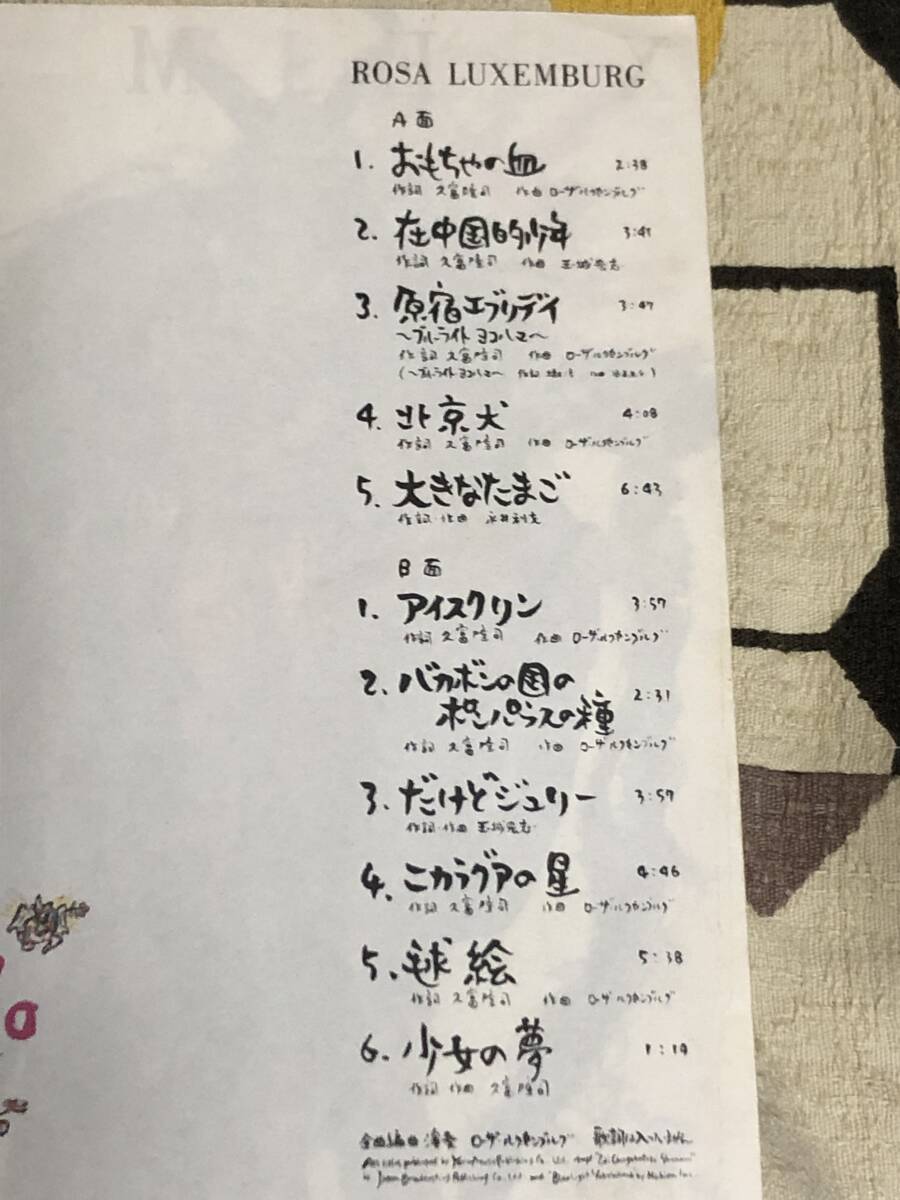 ROSA LUXEMBURG
A面
1. おもちゃの血 2:38
作詞 久富隆司 作曲 ローザルクセンブルグ
2. 在中国的少年
作詞 久富隆司 作曲 玉城宏志
3. 原宿エブリデイ 3:47
〜ブルーライトヨコハマ〜
作詞 久富隆司 作曲 ローザルクセンブルグ
(〜ブルーライトヨコハマ〜 作詞
4. 北京犬 4:08
作詞 久富隆司 作曲 ローザルクセンブルグ
5. 大きなたまご 6:43
作詞・作曲 永井利充
B面
1. アイスクリン 3:57
作詞 久富隆司 作曲 ローザルクセンブルグ
2. バカボンの国の
ポンパラスの種 2:31
作詞 久富隆司 作曲 ローザルクセンブルグ
3. だけどジュリー 3:57
作詞・作曲 玉城宏志
4. ニカラグアの星 4:46
作詞 久富隆司 作曲 ローザルクセンブルグ
5. 毬絵 5:38
作詞 久富隆司 作曲 ローザルクセンブルグ
6. 少女の夢
作詞 作曲 久富隆司
全曲編曲 演奏 ローザルクセンブルグ